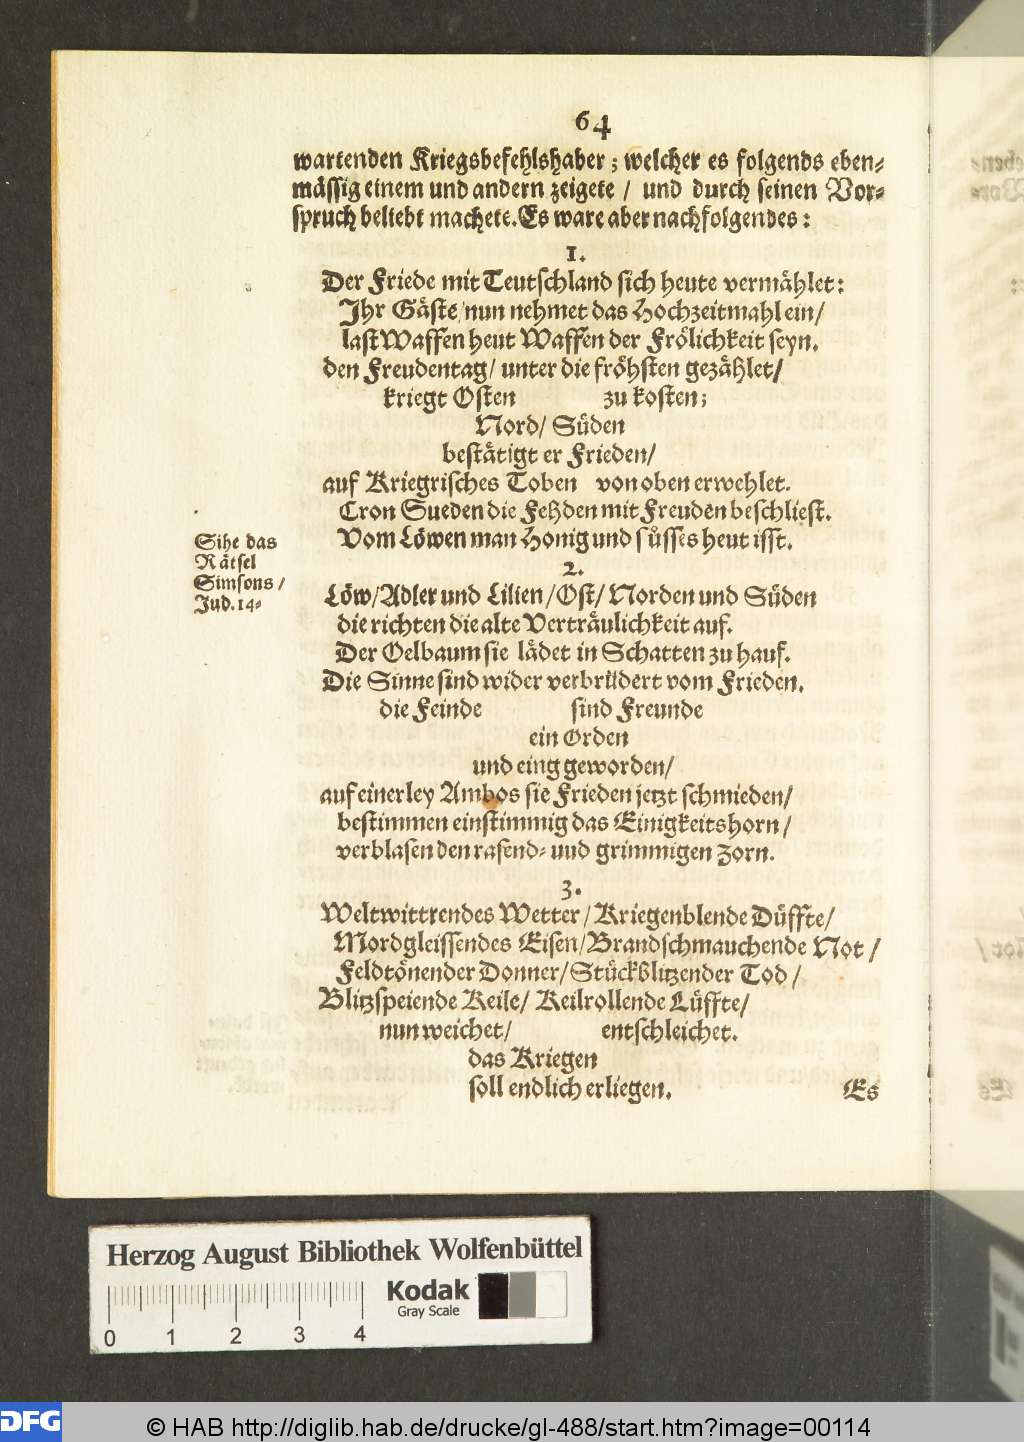 64
wartenden Kriegsbefehlshaber; welcher es folgends eben-
mässig einem und andern zeigete / und durch seinen Vor-
spruch beliebt machete. Es ware aber nachfolgendes:
1.
Der Friede mit Teutschland sich heute vermählet:
Ihr Gäste/nun nehmet das Hochzeitmahl ein/
last Waffen heut Waffen der Frölichkeit seyn.
den Freudentag/ unter die fröhsten gezählet/
kriegt Osten zu kosten;
Nord/ Süden
bestätigt er Frieden/
auf Kriegrisches Toben von oben erwehlet.
Cron Sueden die Fehden mit Freuden beschliest.
Vom Löwen man Honig und süsses heut isst.
Sihe das
Rätsel
Simsons/
Jud. 14.
2.
Löw/Adler und Lilien/Ost/Norden und Süden
die richten die alte Verträulichkeit auf.
Der Oelbaum sie lädet in Schatten zu hauf.
Die Sinne sind wider verbrüdert vom Frieden.
die Feinde sind Freunde
ein Orden
und einig geworden/
auf einerley Ambos sie Frieden jetzt schmieden/
bestimmen einstimmig das Einigkeitshorn/
verblasen den rasend- und grimmigen Zorn.
3.
Weltwittrendes Wetter/Kriegenblende Düffte/
Mordgleissendes Eisen/Brandschmauchende Not/
Feldtönender Donner/Stückblitzender Tod/
Blitzspeiende Keile/ Keilrollende Lüffte/
nun weichet/ entschleichet.
das Kriegen
soll endlich erliegen.
Es
Herzog August Bibliothek Wolfenbüttel
0 1 2 3 4
Kodak
Gray Scale
DFG
© HAB http://diglib.hab.de/drucke/gl-488/start.htm?image=00114